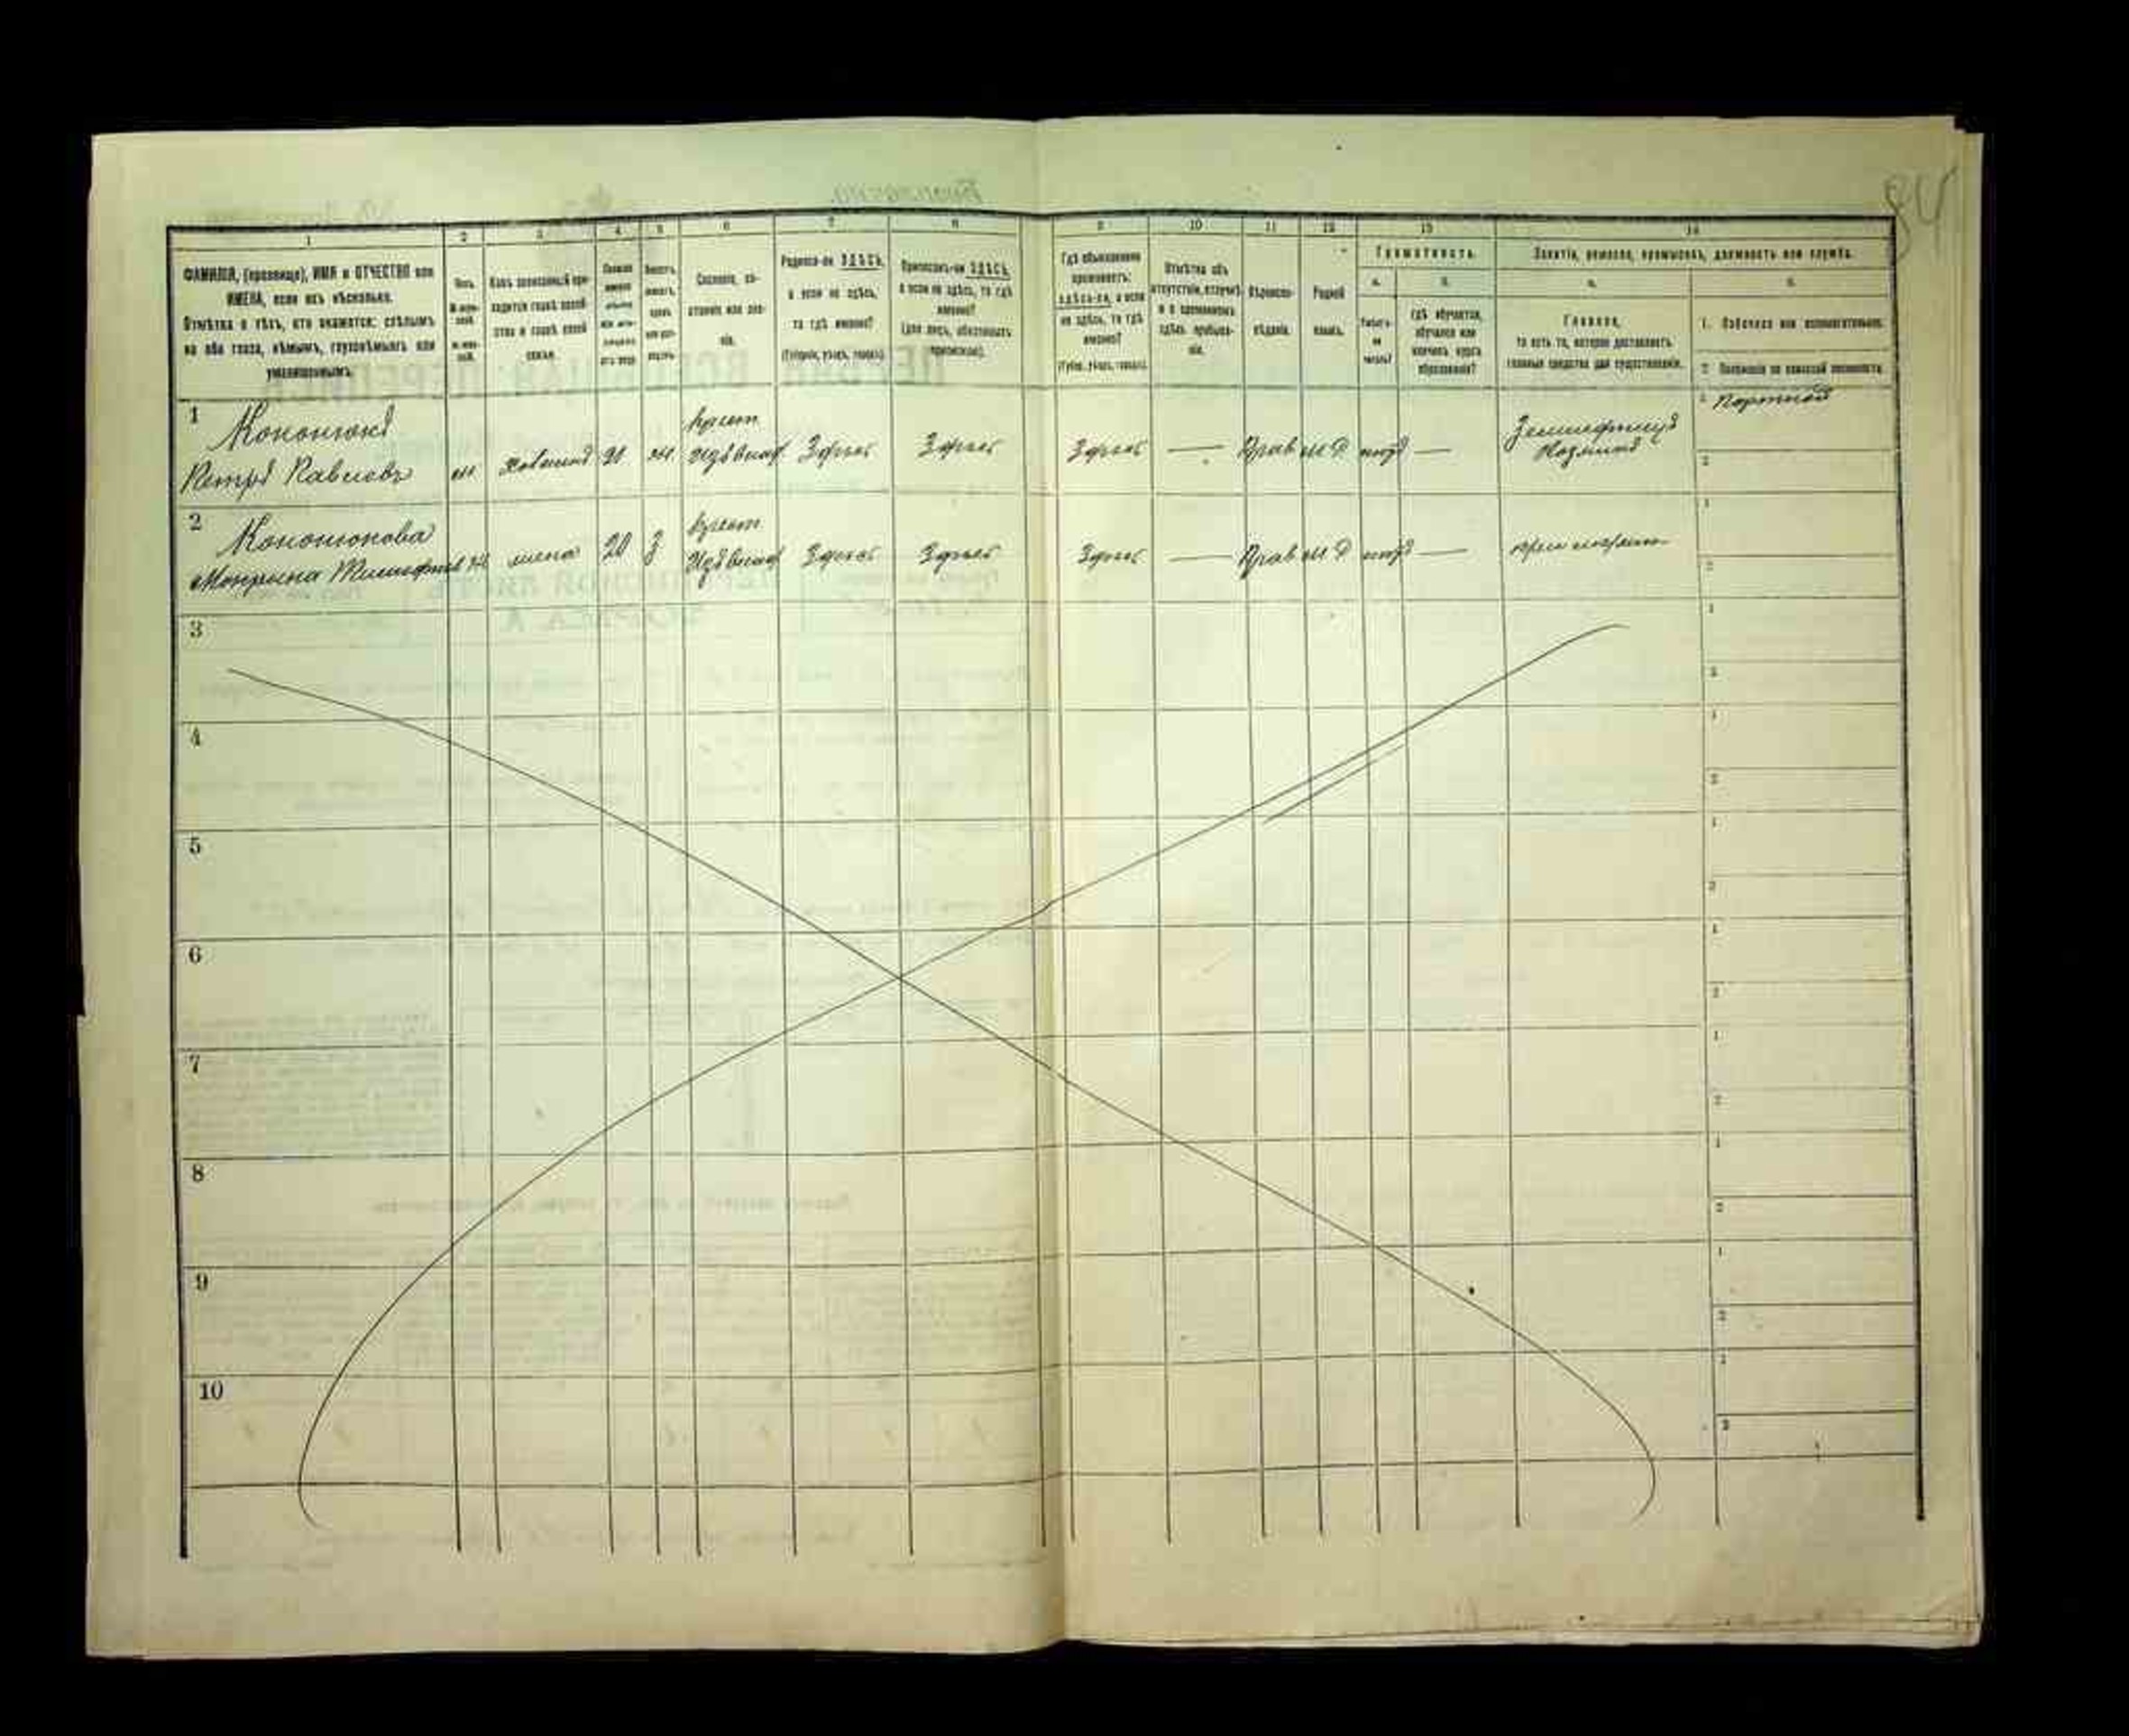 84
1 2 3 4 5 6 7 8 9 10 11 12 13 14
ФАМИЛІЯ, (прозвище), ИМЯ и ОТЧЕСТВО или
ИМЕНА, если ихъ нѣсколько.
Отмѣтка о тѣхъ, кто окажется: слѣпымъ
на оба глаза, нѣмымъ, глухонѣмымъ или
умалишеннымъ.
Полъ.
Сословіе, со-
стояніе или зва-
ніе.
Родился-ли ЗДѢСЬ,
а если не здѣсь,
то гдѣ именно?
(Губернія, уѣздъ, городъ).
Приписанъ-ли ЗДѢСЬ,
а если не здѣсь, то гдѣ
именно?
(для лицъ, обязанныхъ
припискою).
Гдѣ обыкновенно
проживаетъ:
здѣсь-ли, а если
не здѣсь, то гдѣ
именно?
(Губер., уѣздъ, городъ).
Отмѣтка объ
отсутствіи, отлучкѣ
и о временномъ
здѣсь пребыва-
ніи.
Вѣроиспо-
вѣданіе.
Родной
языкъ.
Грамотность.
а. б.
Умѣетъ-
ли
читать?
гдѣ обучается,
обучался или
кончилъ курсъ
образованія?
Занятіе, ремесло, промыселъ, должность или служба.
а.
Главное,
то есть то, которое доставляетъ
главныя средства для существованія.
б.
1. Побочное или вспомогательное.
2. Положеніе по воинской повинности.
1 Кононюкъ
Петръ Павловъ
м хозяинъ ж
Крест.
Здѣсь Здѣсь Здѣсь — Прав М Р нѣтъ —
Земледѣлецъ
Хозяинъ
1 Портной
2
2 Кононюкова
ж жена 20 З
Крест.
Здѣсь Здѣсь Здѣсь — Прав М Р нѣтъ —
при
1
2
3
1
2
4
1
2
5
1
2
6
1
2
7
1
2
8
1
2
9
1
2
10
1
2